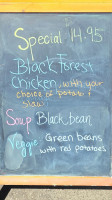 Special 14.95
Black Forest
Chicken, with your
choice of potato &
slaw
Soup Black bean
Veggie Green beans
with red potatoes